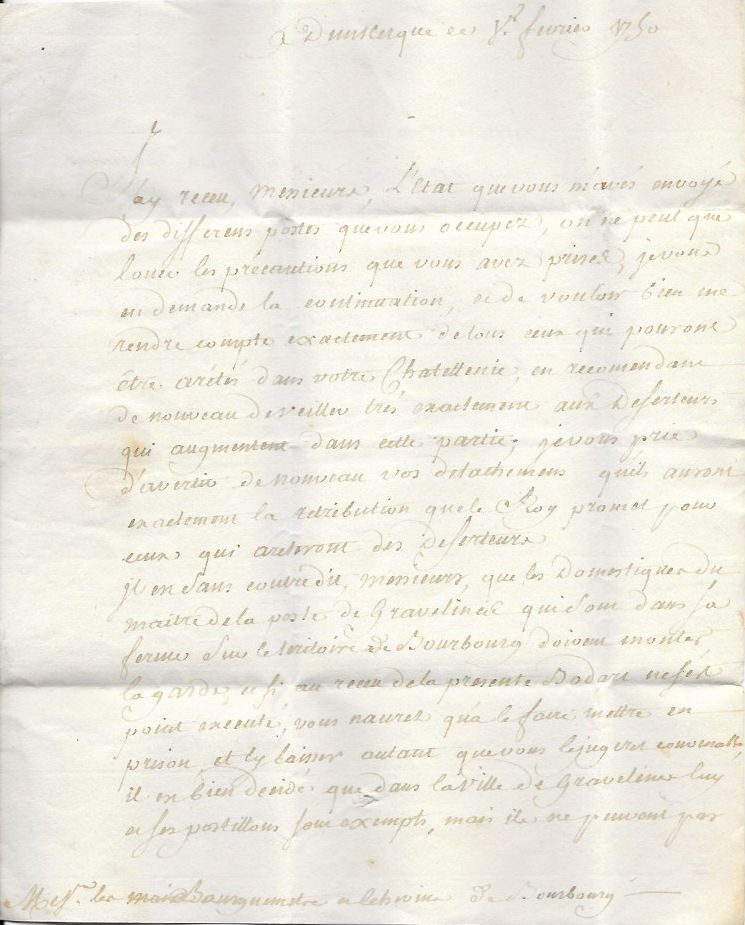 a Dunkerque ce fevrier 1750
J'ay receu, Messieurs, L'Etat que vous m'avés envoyé
des differens postes que vous occupez, on ne peut que
louer les précautions que vous avez prises, je vous
en demande la continuation, et de vouloir bien me
rendre compte exactement de tous ceux qui pouront
être aretés dans votre Chatellenie, en recomendant
de nouveau de veiller très exactement aux Deserteurs
qui augmentent dans cette partie, je vous prie
d'avertir de nouveau vos detachemens qu'ils auront
exactement la retribution que le Roy promet pour
ceux qui areteront des Deserteurs
il est sans contredit, Messieurs, que les Domestiques du
maitre de la poste de Gravelines qui sont dans sa
ferme sur le teritoire de Bourbourg doivent monter
la garde, et si au receu de la presente Bodart ne s'est
point executé, vous n'aurez qu'a le faire mettre en
prison et l'y laisser autant que vous le jugerez convenable,
il est bien decidé que dans la ville de Gravelines luy
et ses postillons sont exempts, mais ils ne peuvent pas
Mess.rs les Bourguemestre et Echevins de Bourbourg